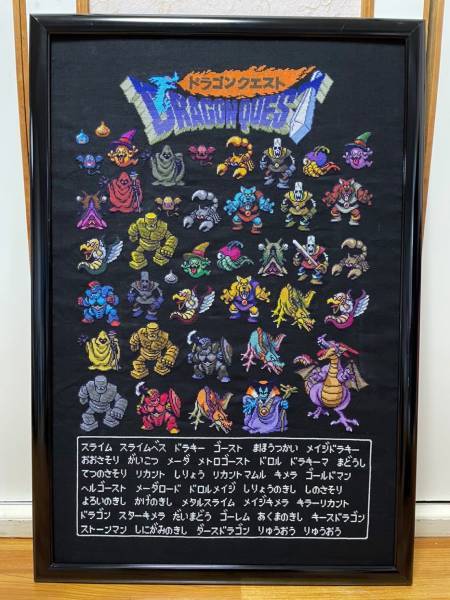 ドラゴンクエスト
DRAGON QUEST
スライム スライムベス ドラキー ゴースト まほうつかい メイジドラキー
おおさそり がいこつ メーダ メトロゴースト ドロル ドラキーマ まどうし
てつのさそり リカント しりょう リカントマムル キメラ ゴールドマン
ヘルゴースト メーダロード ドロルメイジ しりょうのきし しのさそり
よろいのきし かげのきし メタルスライム メイジキメラ キラーリカント
ドラゴン スターキメラ だいまどう ゴーレム あくまのきし キースドラゴン
ストーンマン しにがみのきし ダースドラゴン りゅうおう りゅうおう